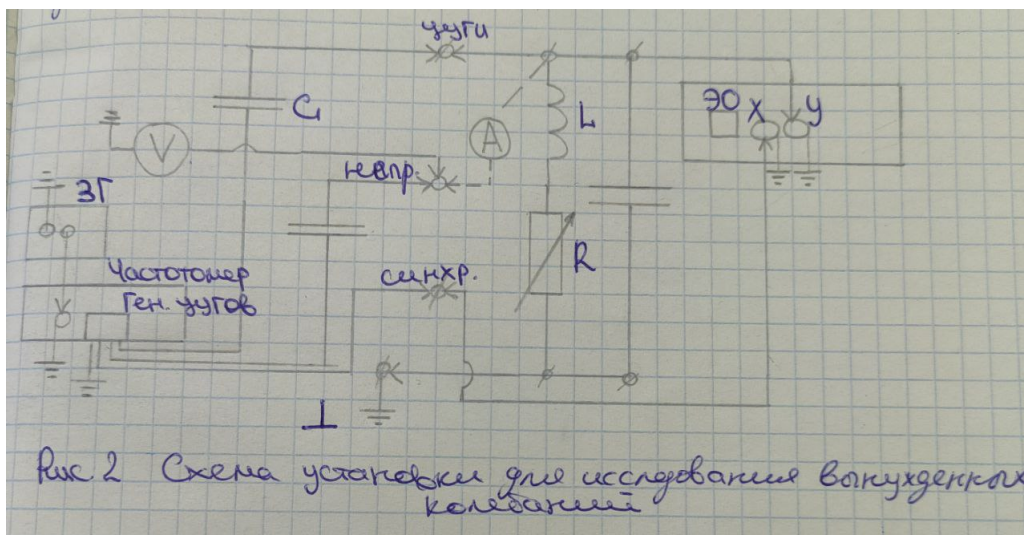 цуги
C₁
V
A
L
ЭО X У
напр.
ЗГ
R
Частотомер
синхр.
Ген. цугов
⊥
Рис. 2 Схема установки для исследования вынужденных
колебаний